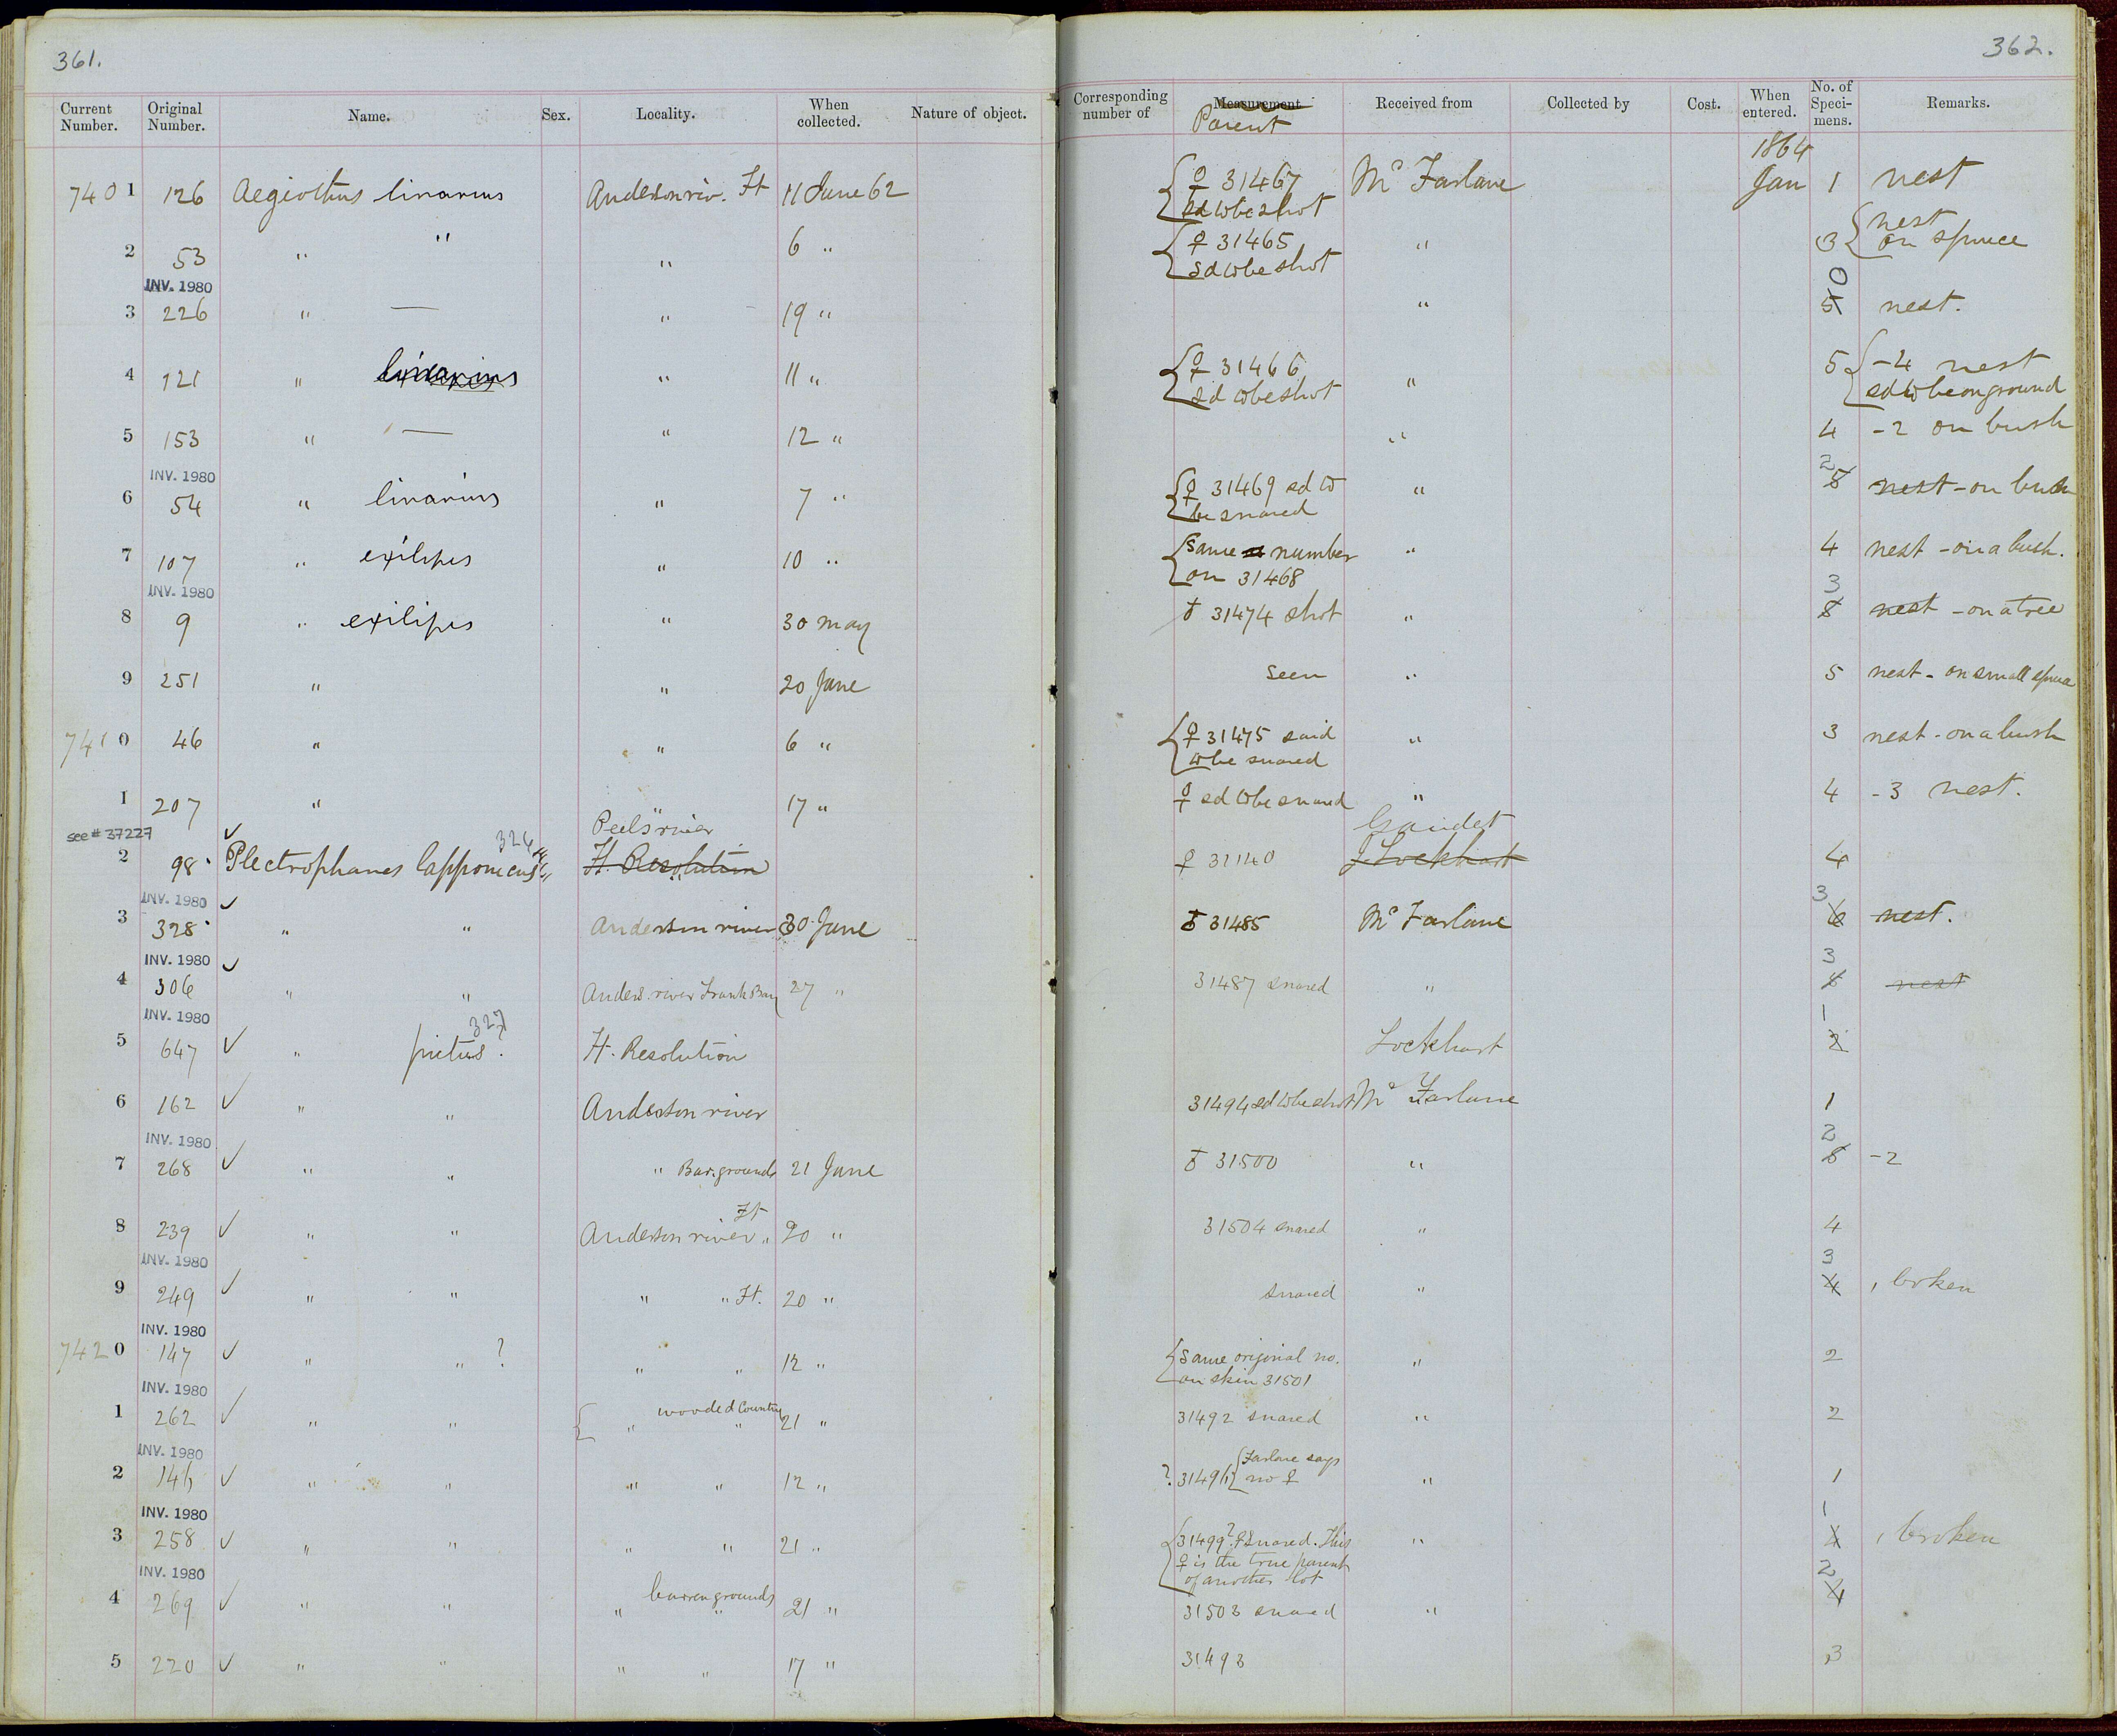 361.
Current Number. Original Number. Name. Sex. Locality. When collected. Nature of object.
7401 126 Aegiothus linarius Anderson riv. Ft 11 June 62
2 53 " " " 6 "
INV. 1980
3 226 " — " 19 "
4 121 " linarius " 11 "
5 153 " — " 12 "
INV. 1980
6 54 " linarius " 7 "
7 107 " exilipes " 10 "
INV. 1980
8 9 " exilipes " 30 may
9 251 " " 20 June
7410 46 " " 6 "
1 207 " " 17 "
see # 37227 Peels river
2 98 ✓ Plectrophanes lapponicus 326 Ft. Resolution
INV. 1980 ✓
3 328 " " Anderson river 30 June
INV. 1980 ✓
4 306 " " Anders. river Frank Bay 27 "
INV. 1980
5 647 ✓ " pictus? 327 Ft. Resolution
6 162 ✓ " " Anderson river
INV. 1980
7 268 ✓ " " " Bar. grounds 21 June
8 239 ✓ " " Anderson river " Ft 20 "
INV. 1980
9 249 ✓ " " " " Ft. 20 "
INV. 1980
7420 147 ✓ " " ? " " 12 "
INV. 1980
1 262 ✓ " " " wooded Country " 21 "
INV. 1980
2 146 ✓ " " " " 12 "
INV. 1980
3 258 ✓ " " " " 21 "
INV. 1980
4 269 ✓ " " " barren grounds " 21 "
5 220 ✓ " " " " 17 "
362.
Corresponding number of Measurement Received from Collected by Cost. When entered. No. of Specimens. Remarks.
Parent
1864
♀ 31467 Mc Farlane Jan 1 nest
sd to be shot
♀ 31465 " 3 nest on spruce
sd to be shot
0
" 5 nest.
♀ 31466 " 5 -4 nest
sd to be shot sd to be on ground
" 4 -2 on bush
2
♀ 31469 sd to " 8 nest - on bush
be snared
same number " 4 nest - on a bush.
on 31468
3
♂ 31474 shot " 8 nest - on a tree
seen " 5 nest - on small spruce
♀ 31475 said " 3 nest - on a bush
to be snared
♀ sd to be snared " 4 -3 nest.
Gaudet
♀ 31140 J. Lockhart 4
3
♂ 31485 Mc Farlane 6 nest.
3
31487 snared " nest
1
Lockhart 2
31494 sd to be shot Mc Farlane 1
2
♂ 31500 " -2
31504 snared " 4
3
snared " 4 , broken
same original no. " 2
on skin 31501
31492 snared " 2
? 31496 Farlane says no ♀ " 1
1
31499? ♀ snared. This " , broken
♀ is the true parent
of another lot
2
31503 snared " 4
31493 3